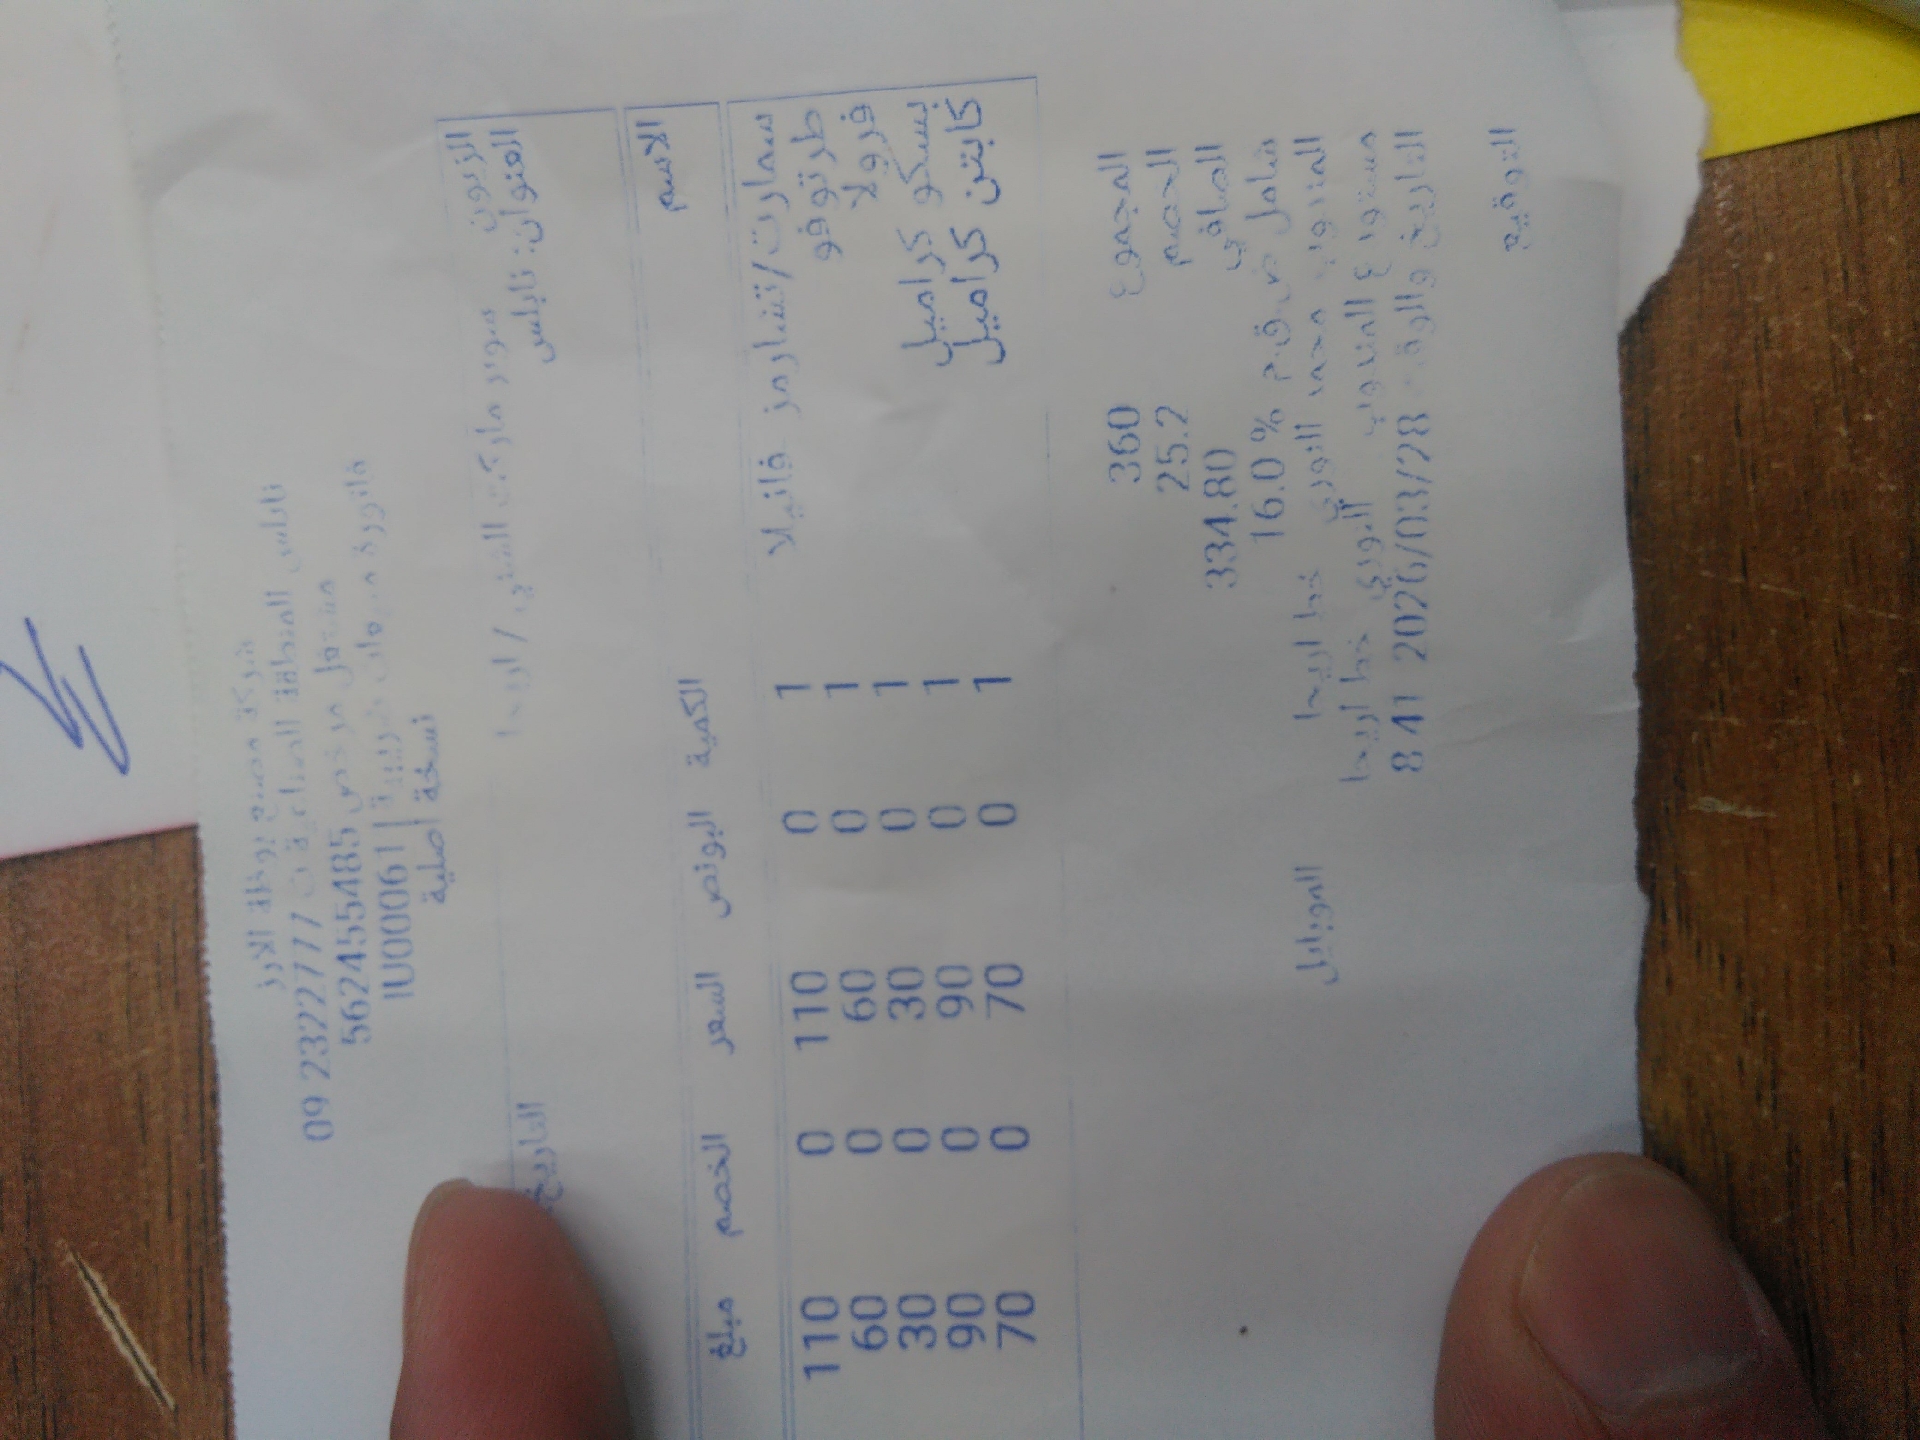 شركة مصنع بوظة الارز
نابلس المنطقة الصناعية ت 09 2322777
مشتغل مرخص 562455485
فاتورة مبيعات ضريبية | IU00061
نسخة اصلية
الزبون سوبر ماركت / اريحا
العنوان: نابلس التاريخ
الاسم الكمية البونص السعر الخصم مبلغ
سمارت/تشارمز فانيلا 1 0 110 0 110
طرتوفو 1 0 60 0 60
فرولا 1 0 30 0 30
بسكو كراميل 1 0 90 0 90
كابتن كراميل 1 0 70 0 70
المجموع 360
الخصم 25.2
الصافي 334.80
شامل ض.ق.م % 16.0
المندوب محمد النوري خط اريحا الموبايل
مستودع المندوب النوري خط اريحا
التاريخ والوقت 2026/03/28 8 41
التوقيع